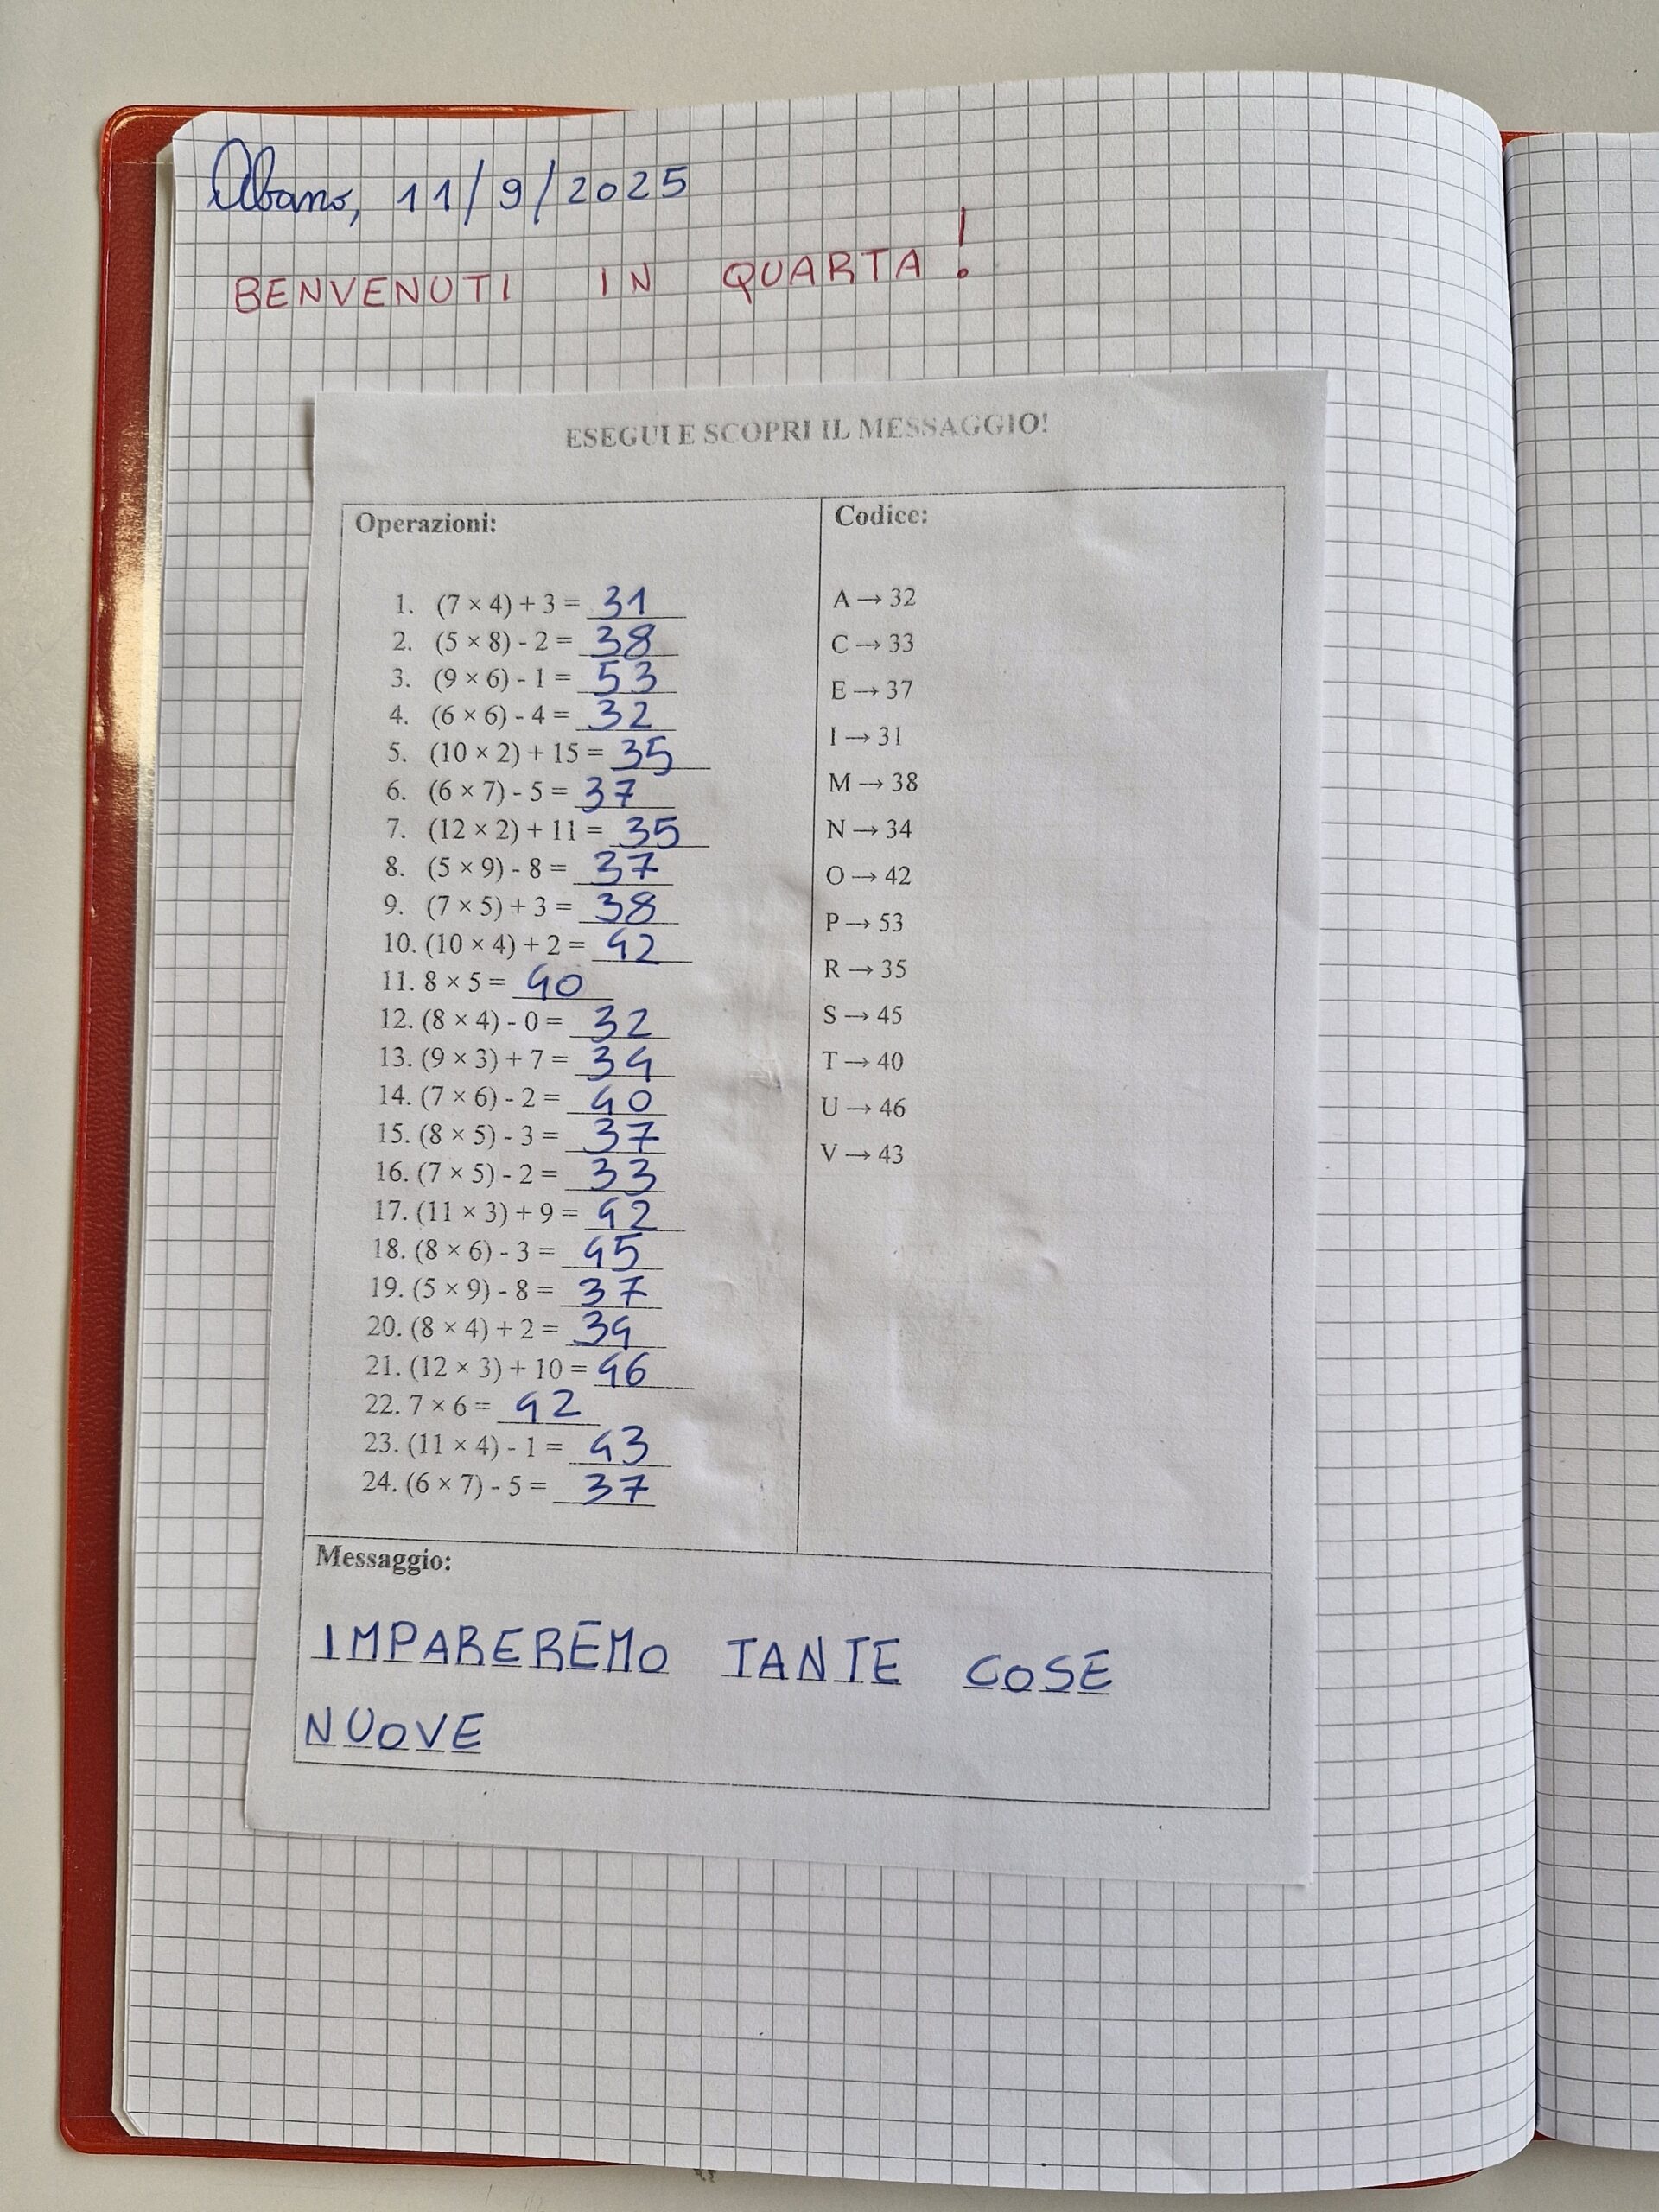 Abano, 11/9/2025
BENVENUTI IN QUARTA!
ESEGUI E SCOPRI IL MESSAGGIO!
Operazioni:
1. (7 × 4) + 3 = 31
2. (5 × 8) - 2 = 38
3. (9 × 6) - 1 = 53
4. (6 × 6) - 4 = 32
5. (10 × 2) + 15 = 35
6. (6 × 7) - 5 = 37
7. (12 × 2) + 11 = 35
8. (5 × 9) - 8 = 37
9. (7 × 5) + 3 = 38
10. (10 × 4) + 2 = 42
11. 8 × 5 = 40
12. (8 × 4) - 0 = 32
13. (9 × 3) + 7 = 34
14. (7 × 6) - 2 = 40
15. (8 × 5) - 3 = 37
16. (7 × 5) - 2 = 33
17. (11 × 3) + 9 = 42
18. (8 × 6) - 3 = 45
19. (5 × 9) - 8 = 37
20. (8 × 4) + 2 = 34
21. (12 × 3) + 10 = 46
22. 7 × 6 = 42
23. (11 × 4) - 1 = 43
24. (6 × 7) - 5 = 37
Codice:
A → 32
C → 33
E → 37
I → 31
M → 38
N → 34
O → 42
P → 53
R → 35
S → 45
T → 40
U → 46
V → 43
Messaggio:
IMPAREREMO TANTE COSE
NUOVE